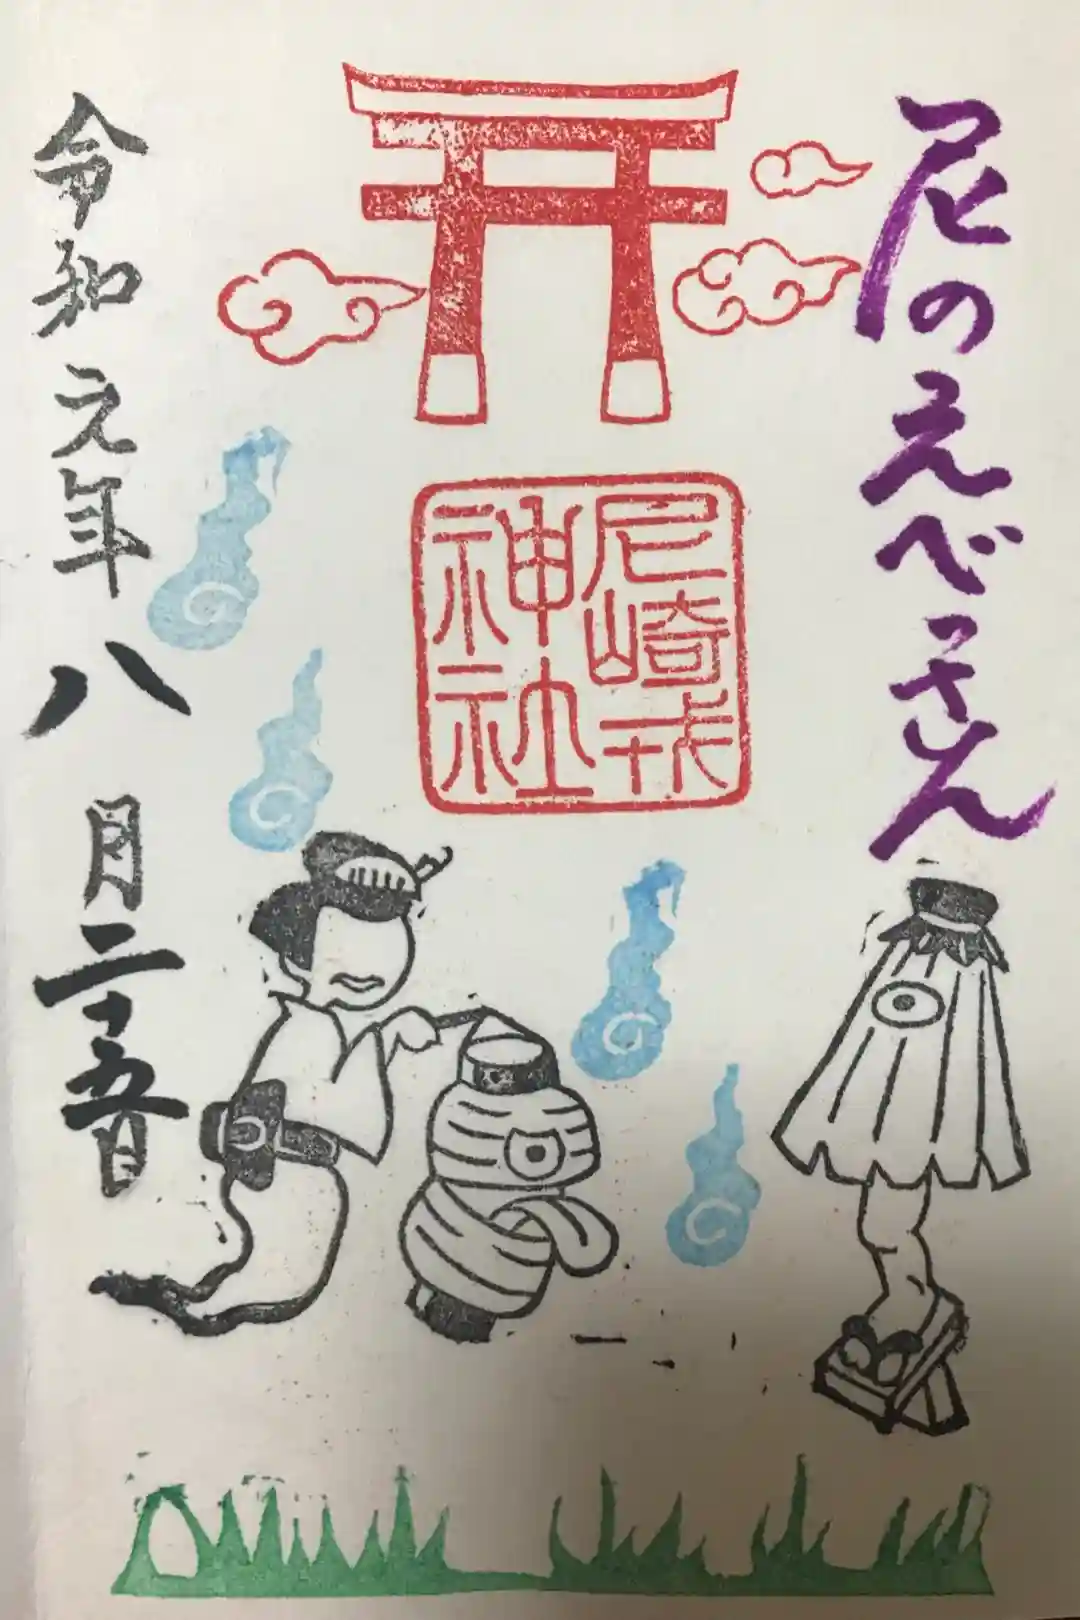 尼のえべっさん
尼崎戎
神社
令和元年八月二十五日